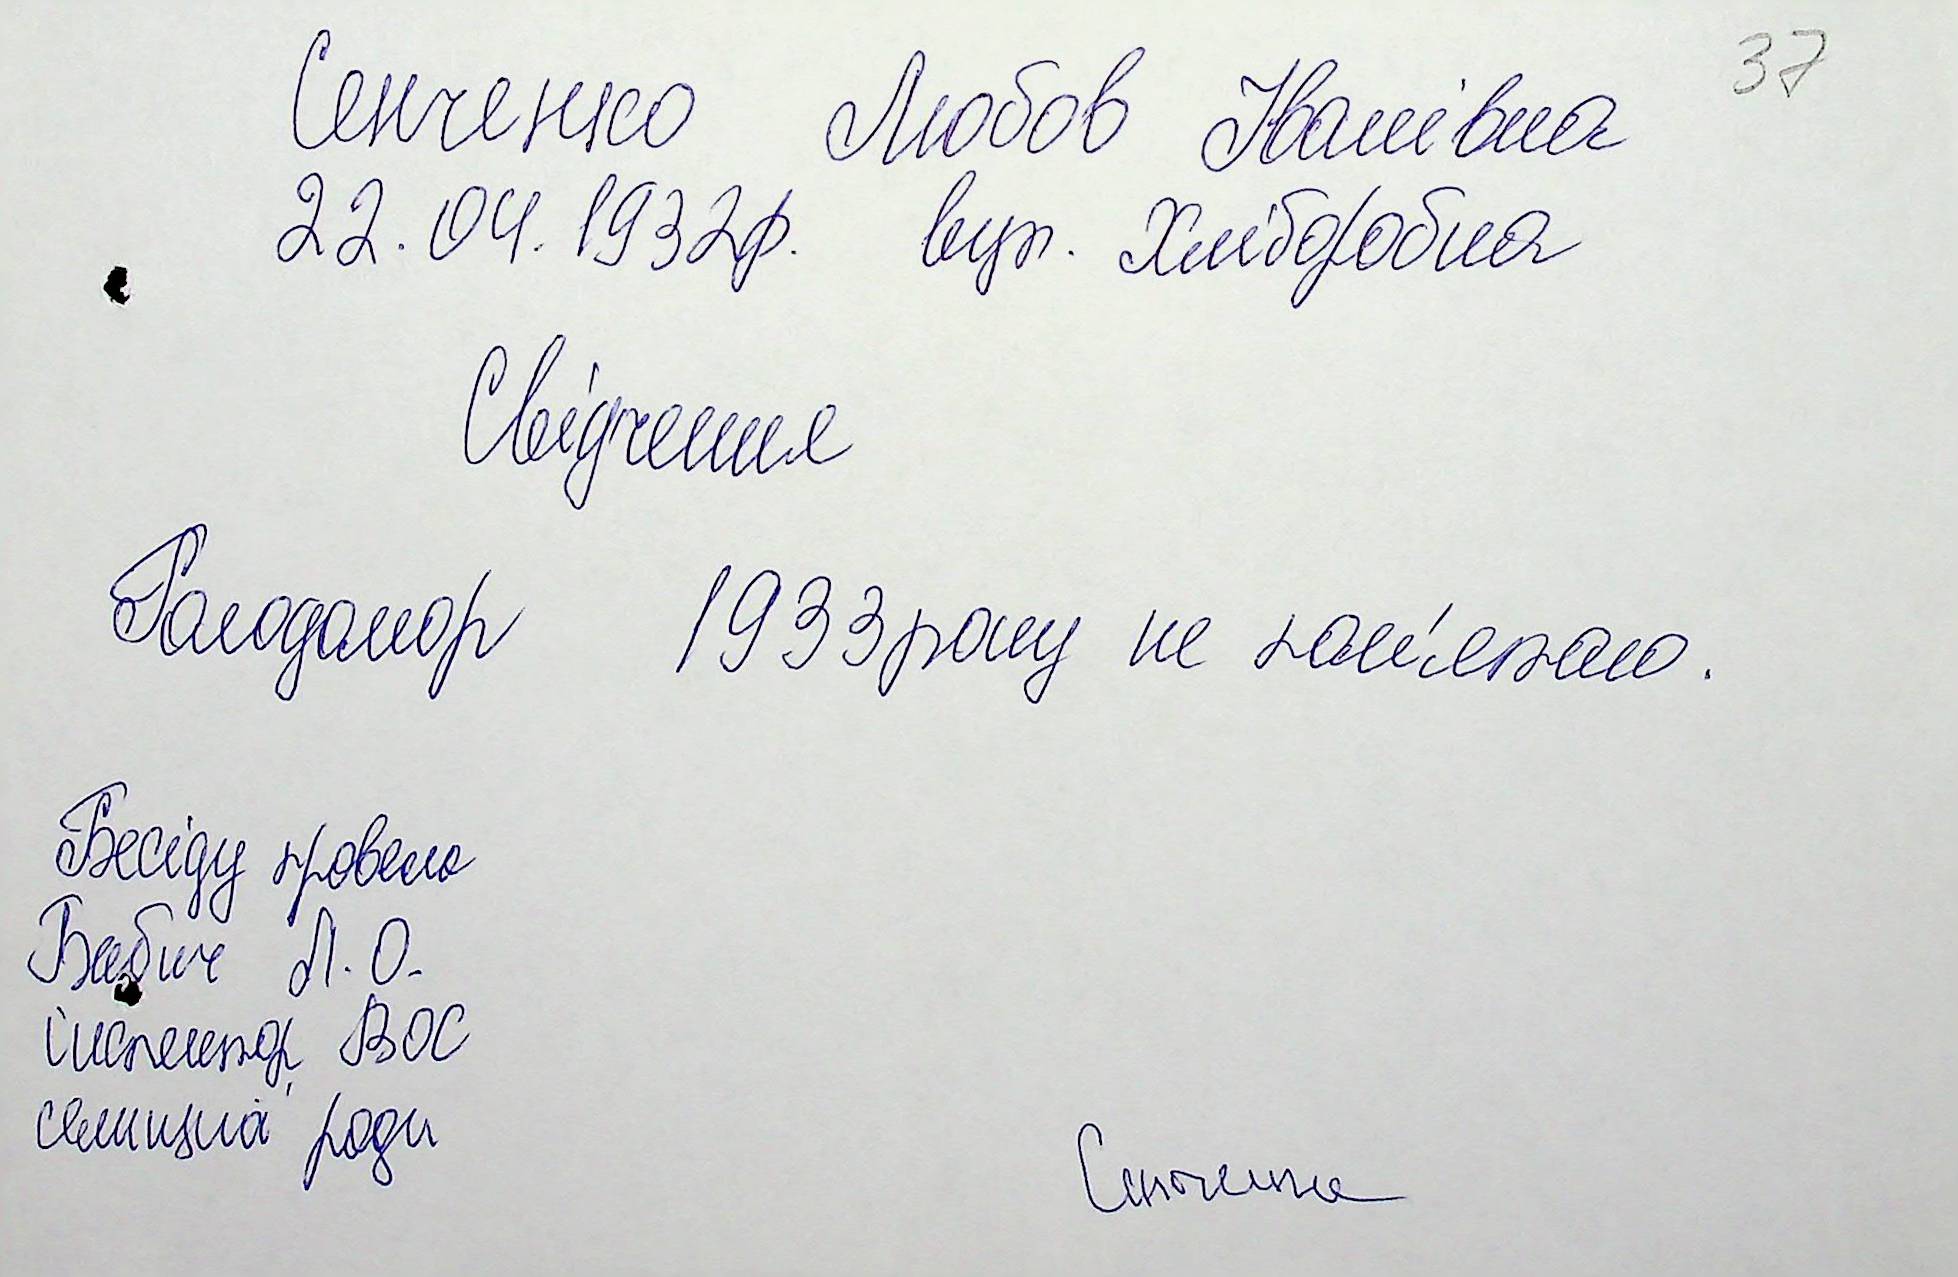 37
Сенченко Любов Іванівна
22.04.1932р. вул. Хліборобна
Свідчення
Голодомор 1933року не пам'ятаю.
Бесіду провела
Бабич Л.О.
інспектор ВОС
селищної ради